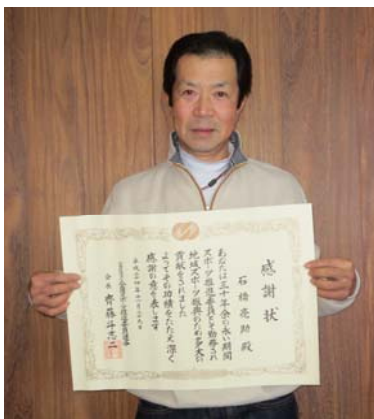 感謝状
石橋亮助 殿
あなたは三十年余の永い期間
スポーツ推進委員として勤務され
地域スポーツ振興のため多大の
貢献をされました
よってその功績をたたえ深く
感謝の意を表します
平成二十
会長 齊藤斗志二